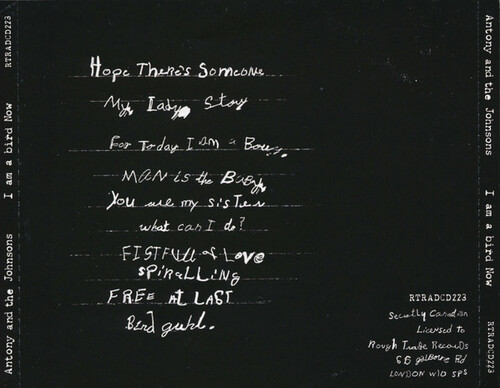 RTRADCD223
I am a bird Now
Antony and the Johnsons
Hope There's Someone
My Lady Story
For Today I Am a Boy
MAN is the Baby
You are my SiSTer
what can I do?
FISTFULL of Love
SPiRALLiNG
FREE AT LAST
Bird guhl.
RTRADCD223
Secretly Canadian
Licensed to
Rough Trade Records
66 golborne Rd
LONDON W10 5PS
Antony and the Johnsons
I am a bird Now
RTRADCD223